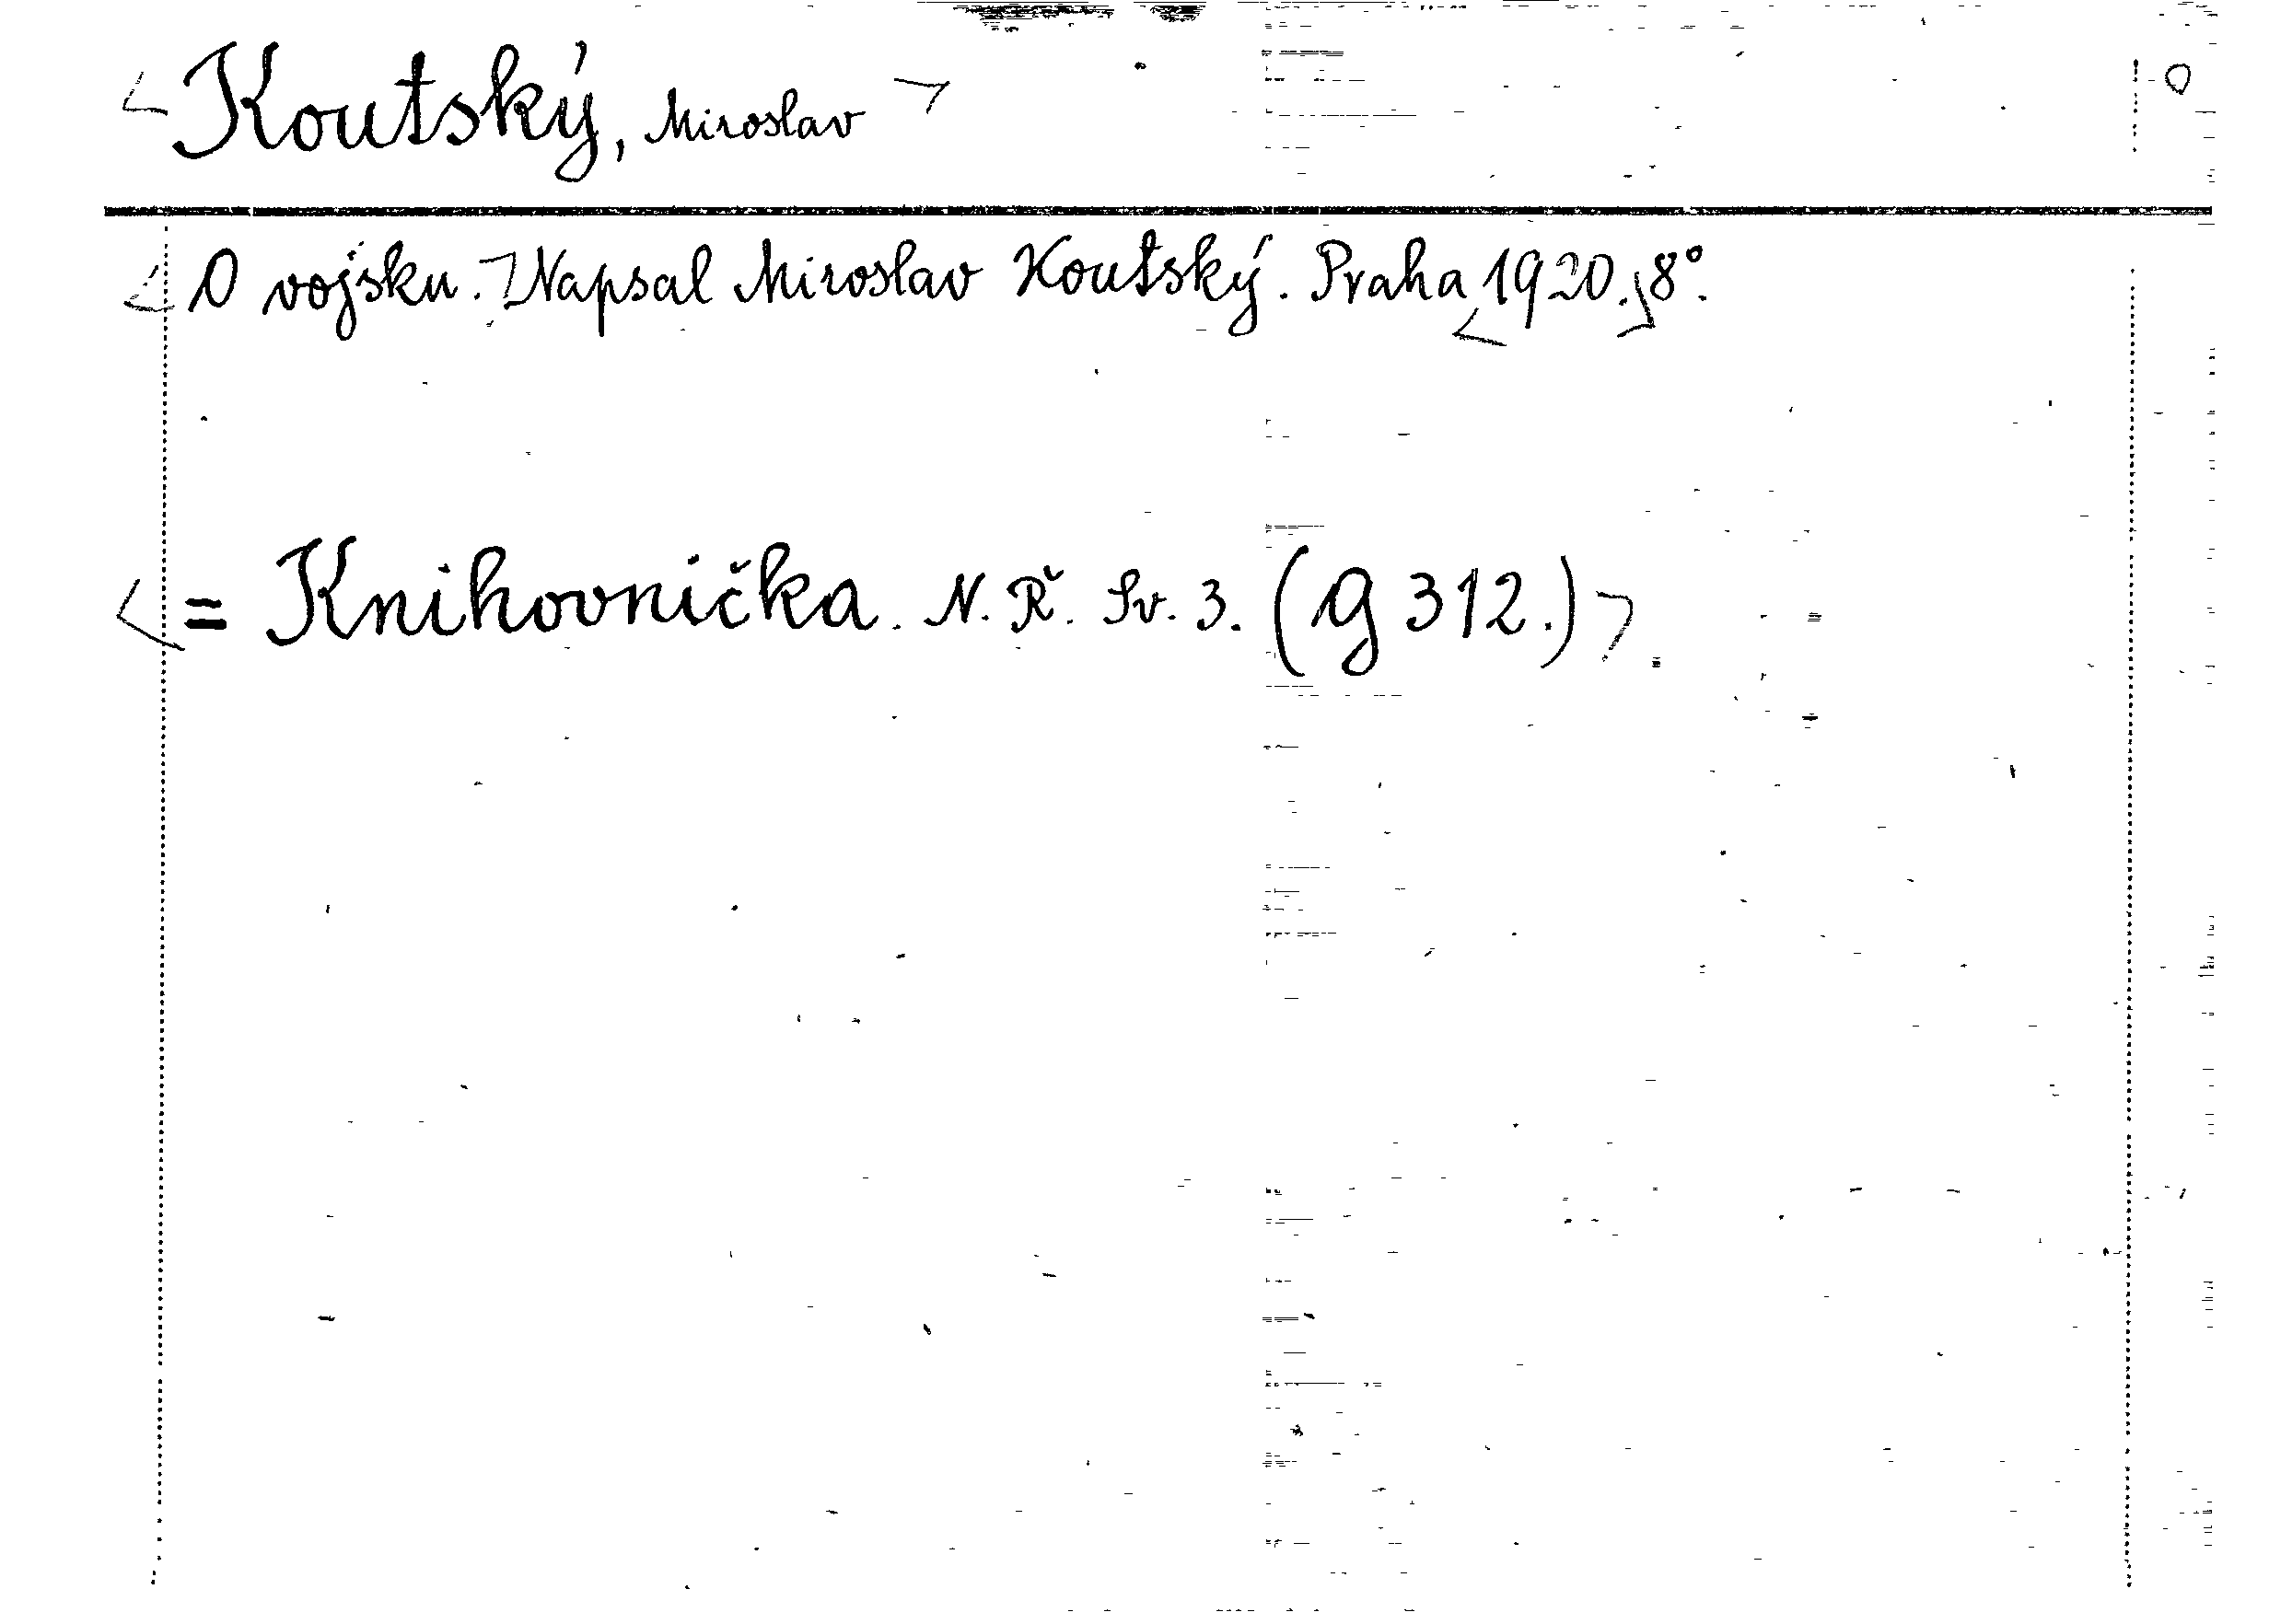 <Koutský, Miroslav> O
<O vojsku.> Napsal Miroslav Koutský. Praha <1920.> 8°.
<= Knihovnička. N. Ř. Sv. 3. (G 312.)>